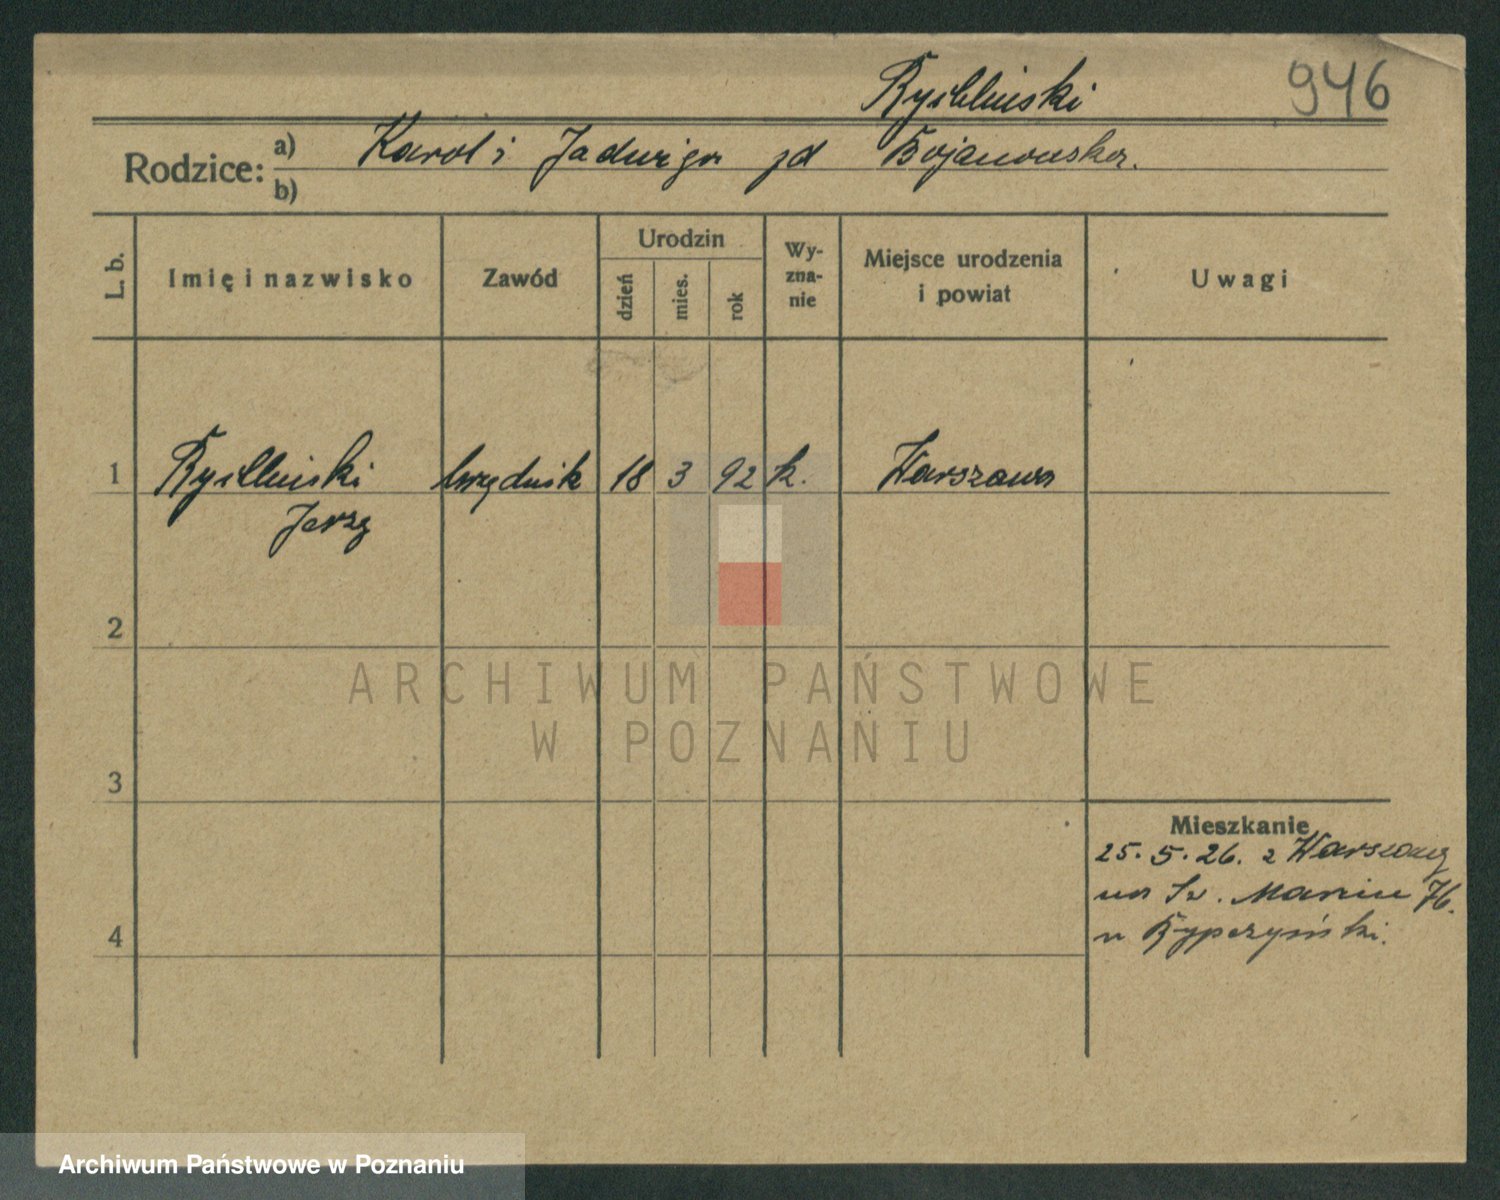 946
Rodzice: a) Karol i Jadwiga zd Bojanowska.
b)
L. b.
Imię i nazwisko
Zawód
Urodzin
dzień
mies.
rok
Wy-
zna-
nie
Miejsce urodzenia
i powiat
Uwagi
1 Urzędnik 18 3 92 k. Warszawa
Jerzy
2
3
4
Mieszkanie
25. 5. 26. z Warszawy
na Św. Marcin 76.
ARCHIWUM PAŃSTWOWE
W POZNANIU
Archiwum Państwowe w Poznaniu